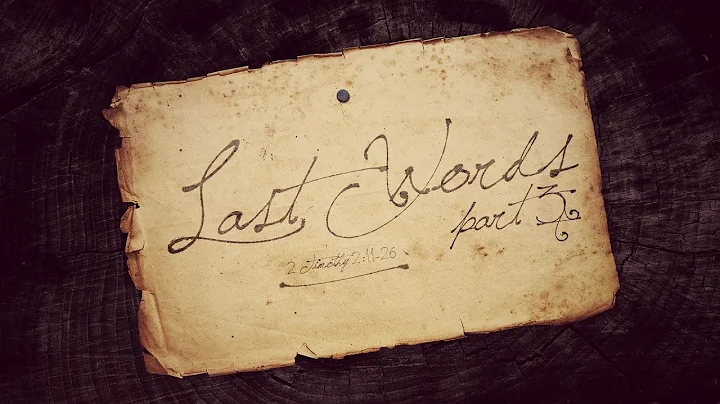 Last Words
part 3
2 Timothy 2:11-26